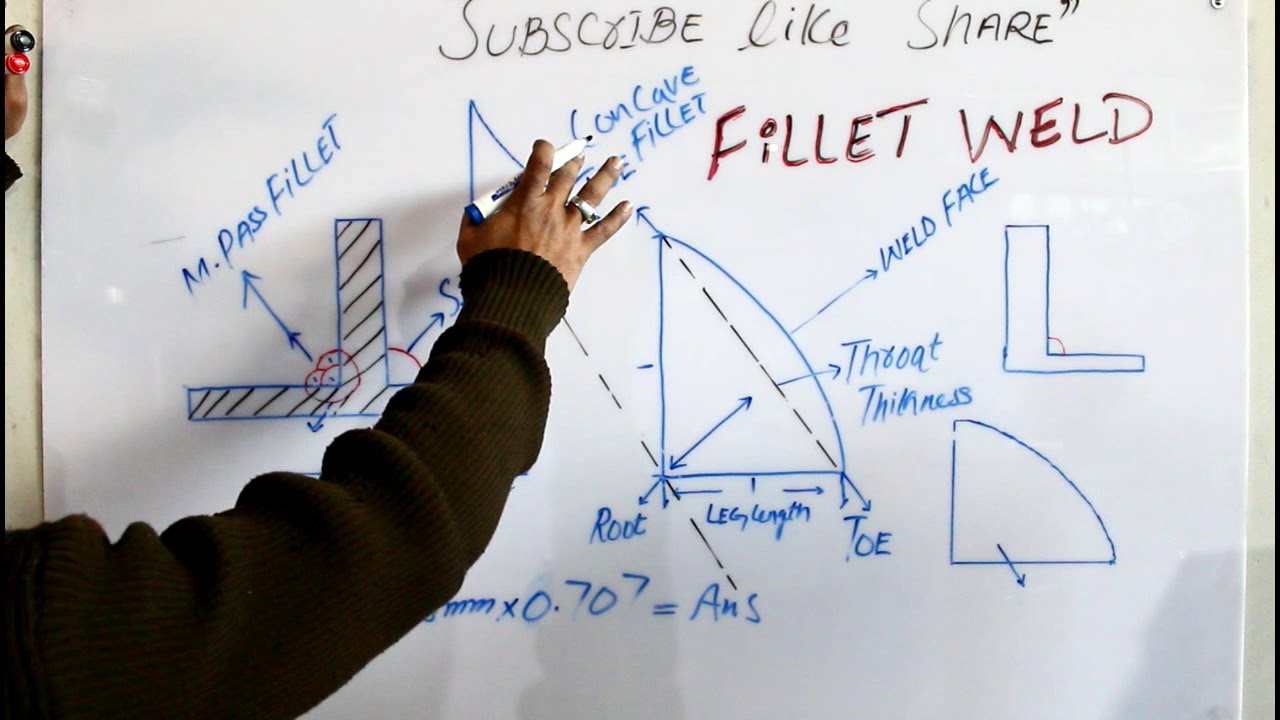 SUBSCRIBE like SHARE"
FILLET WELD
ConCave
FILLET
M. PASS FILLET
WELD FACE
Throat
Thiknness
Root
LEG length
TOE
mm x 0.707 = Ans